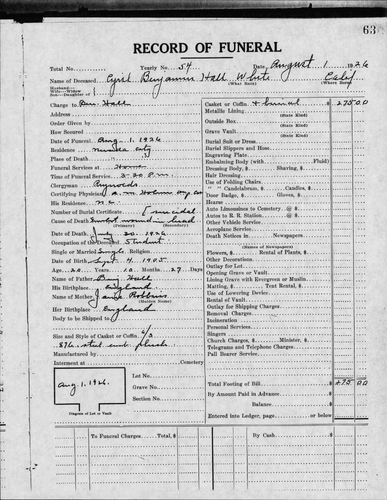 63
RECORD OF FUNERAL
Total No. Yearly No. 54 Date August 1 1926
Name of Deceased Cyril Benjamin Hall White Calif
(What Race) (Where Born)
Husband—
Wife—Widow
Son—Daughter of
Charge to Ben. Hall
Address
Order Given by
How Secured
Date of Funeral Aug. 1. 1926
Residence City
Place of Death
Funeral Services at Home
Time of Funeral Service 3-20 P.M.
Clergyman Reynolds
Certifying Physician
His Residence
Number of Burial Certificate
Cause of Death wound in head
(Primary) (Secondary)
Date of Death July 30. 1926
Occupation of the Deceased Student
Single or Married Single Religion
Date of Birth Sept. 4 1905
Age 20 Years 10 Months 27 Days
Name of Father Benj Hall
His Birthplace England
Name of Mother Jane Robbins
(Maiden Name)
Her Birthplace England
Body to be Shipped to
Size and Style of Casket or Coffin 6/3
plush
Manufactured by
Interment at Cemetery
Lot No.
Grave No.
Section No.
Aug 1. 1926.
Diagram of Lot or Vault
Casket or Coffin & burial $ 275 00
Metallic Lining
(State Kind)
Outside Box
(State Kind)
Grave Vault
(State Kind)
Burial Suit or Dress
Burial Slippers and Hose
Engraving Plate
Embalming Body (with Fluid)
Dressing Body, $ Shaving, $
Hair Dressing
Use of Folding Chairs
" " Candelabrum, $ Candles, $
Door Badge, $ Gloves, $
Hearse
Auto Limousines to Cemetery @ $
Autos to R. R. Station @ $
Other Vehicle Service
Aeroplane Service
Death Notices in Newspapers
(Names of Newspapers)
Flowers, $ Rental of Plants, $
Other Decorations
Outlay for Lot
Opening Grave or Vault
Lining Grave with Evergreen or Muslin
Matting, $ Tent Rental, $
Use of Lowering Device
Rental of Vault
Outlay for Shipping Charges
Removal Charges
Incineration
Personal Services
Singers
Church Charges, $ Minister, $
Telegrams and Telephone Charges
Pall Bearer Service
Total Footing of Bill $ 275 00
By Amount Paid in Advance
Balance
Entered into Ledger, page or below
To Funeral Charges Total $ By Cash $